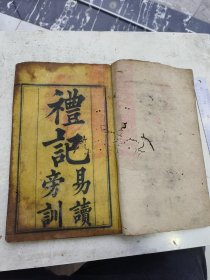 禮記
易讀
旁訓